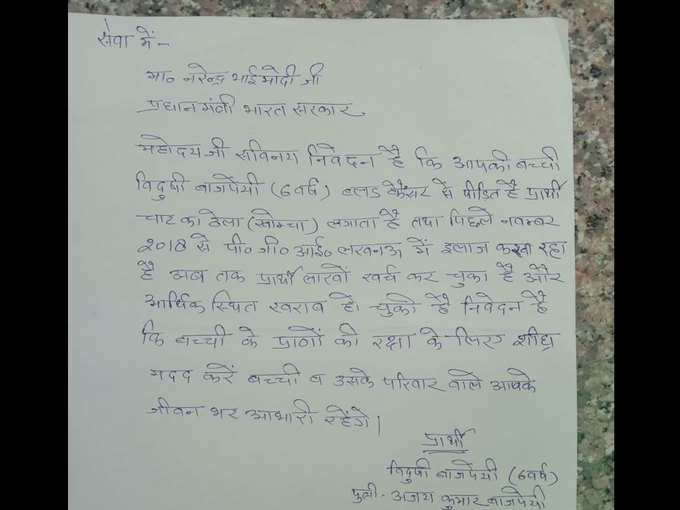 सेवा में -
मा० नरेन्द्र भाई मोदी जी
प्रधान मंत्री भारत सरकार
महोदय जी सविनय निवेदन है कि आपकी बच्ची
विदुषी बाजपेयी (6 वर्ष) ब्लड कैंसर से पीडित है प्रार्थी
चाट का ठेला (खोम्चा) लगाता है तथा पिछले नवम्बर
2018 से पी० जी० आई० लखनऊ में इलाज करवा रहा
है अब तक प्रार्थी लाखों खर्च कर चुका है और
आर्थिक स्थित खराब हो चुकी है निवेदन है
कि बच्ची के प्राणों की रक्षा के लिए शीघ्र
मदद करें बच्ची व उसके परिवार वाले आपके
जीवन भर आभारी रहेंगे।
प्रार्थी
विदुषी बाजपेयी (6 वर्ष)
पुत्री - अजय कुमार बाजपेयी